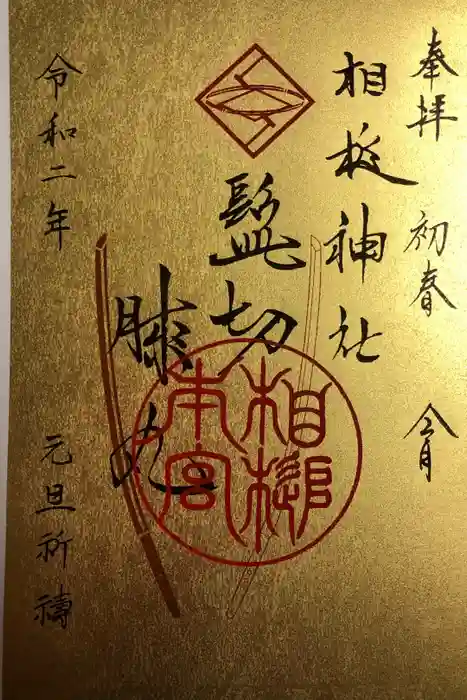 奉拝 初春
相槌神社
髭切
膝丸
令和二年 元旦祈禱
相槌
本宮